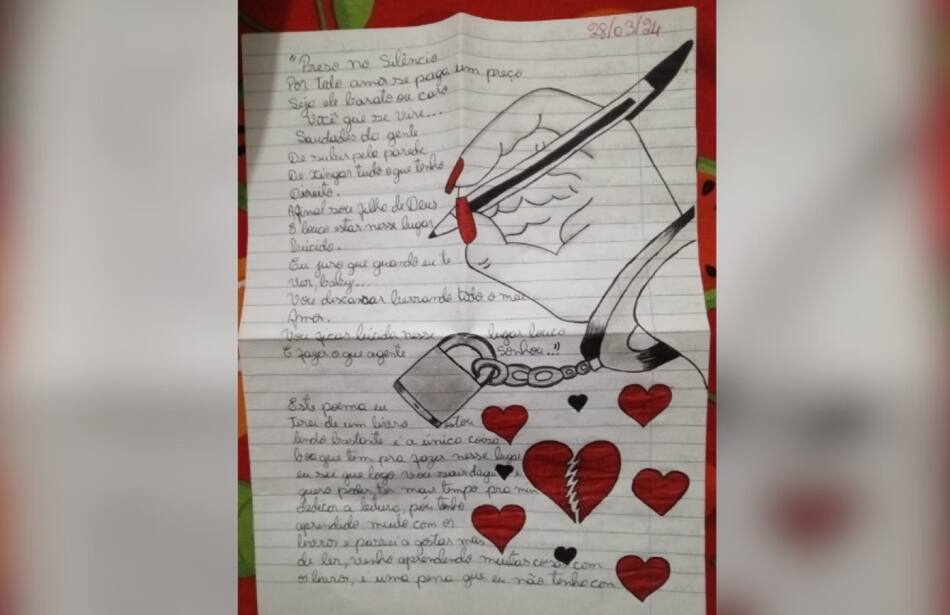 28/03/24
"Preso no Silêncio
Por todo amor se paga um preço
Seja ele barato ou caro
Você que se vire...
Saudades da gente
De subir pela parede
De xingar tudo o que tenho
Direito.
Afinal sou filho de Deus
É louco estar nesse lugar
lúcido.
Eu juro que quando eu te
ver, baby...
Vou descansar berrando todo o meu
Amor.
Vou ficar lúcida nesse lugar louco
E fazer o que agente sonhou..."
Este poema eu
tirei de um livro estou
lendo bastante é a única coisa
boa que tem pra fazer nesse lugar
eu sei que logo vou sair daqui e
quero poder ter mais tempo pra mim
dedicar a leitura, pois tenho
aprendido muito com os
livros e passei a gostar mais
de ler, venho aprendendo muitas coisas com
os livros, é uma pena que eu não tenho com